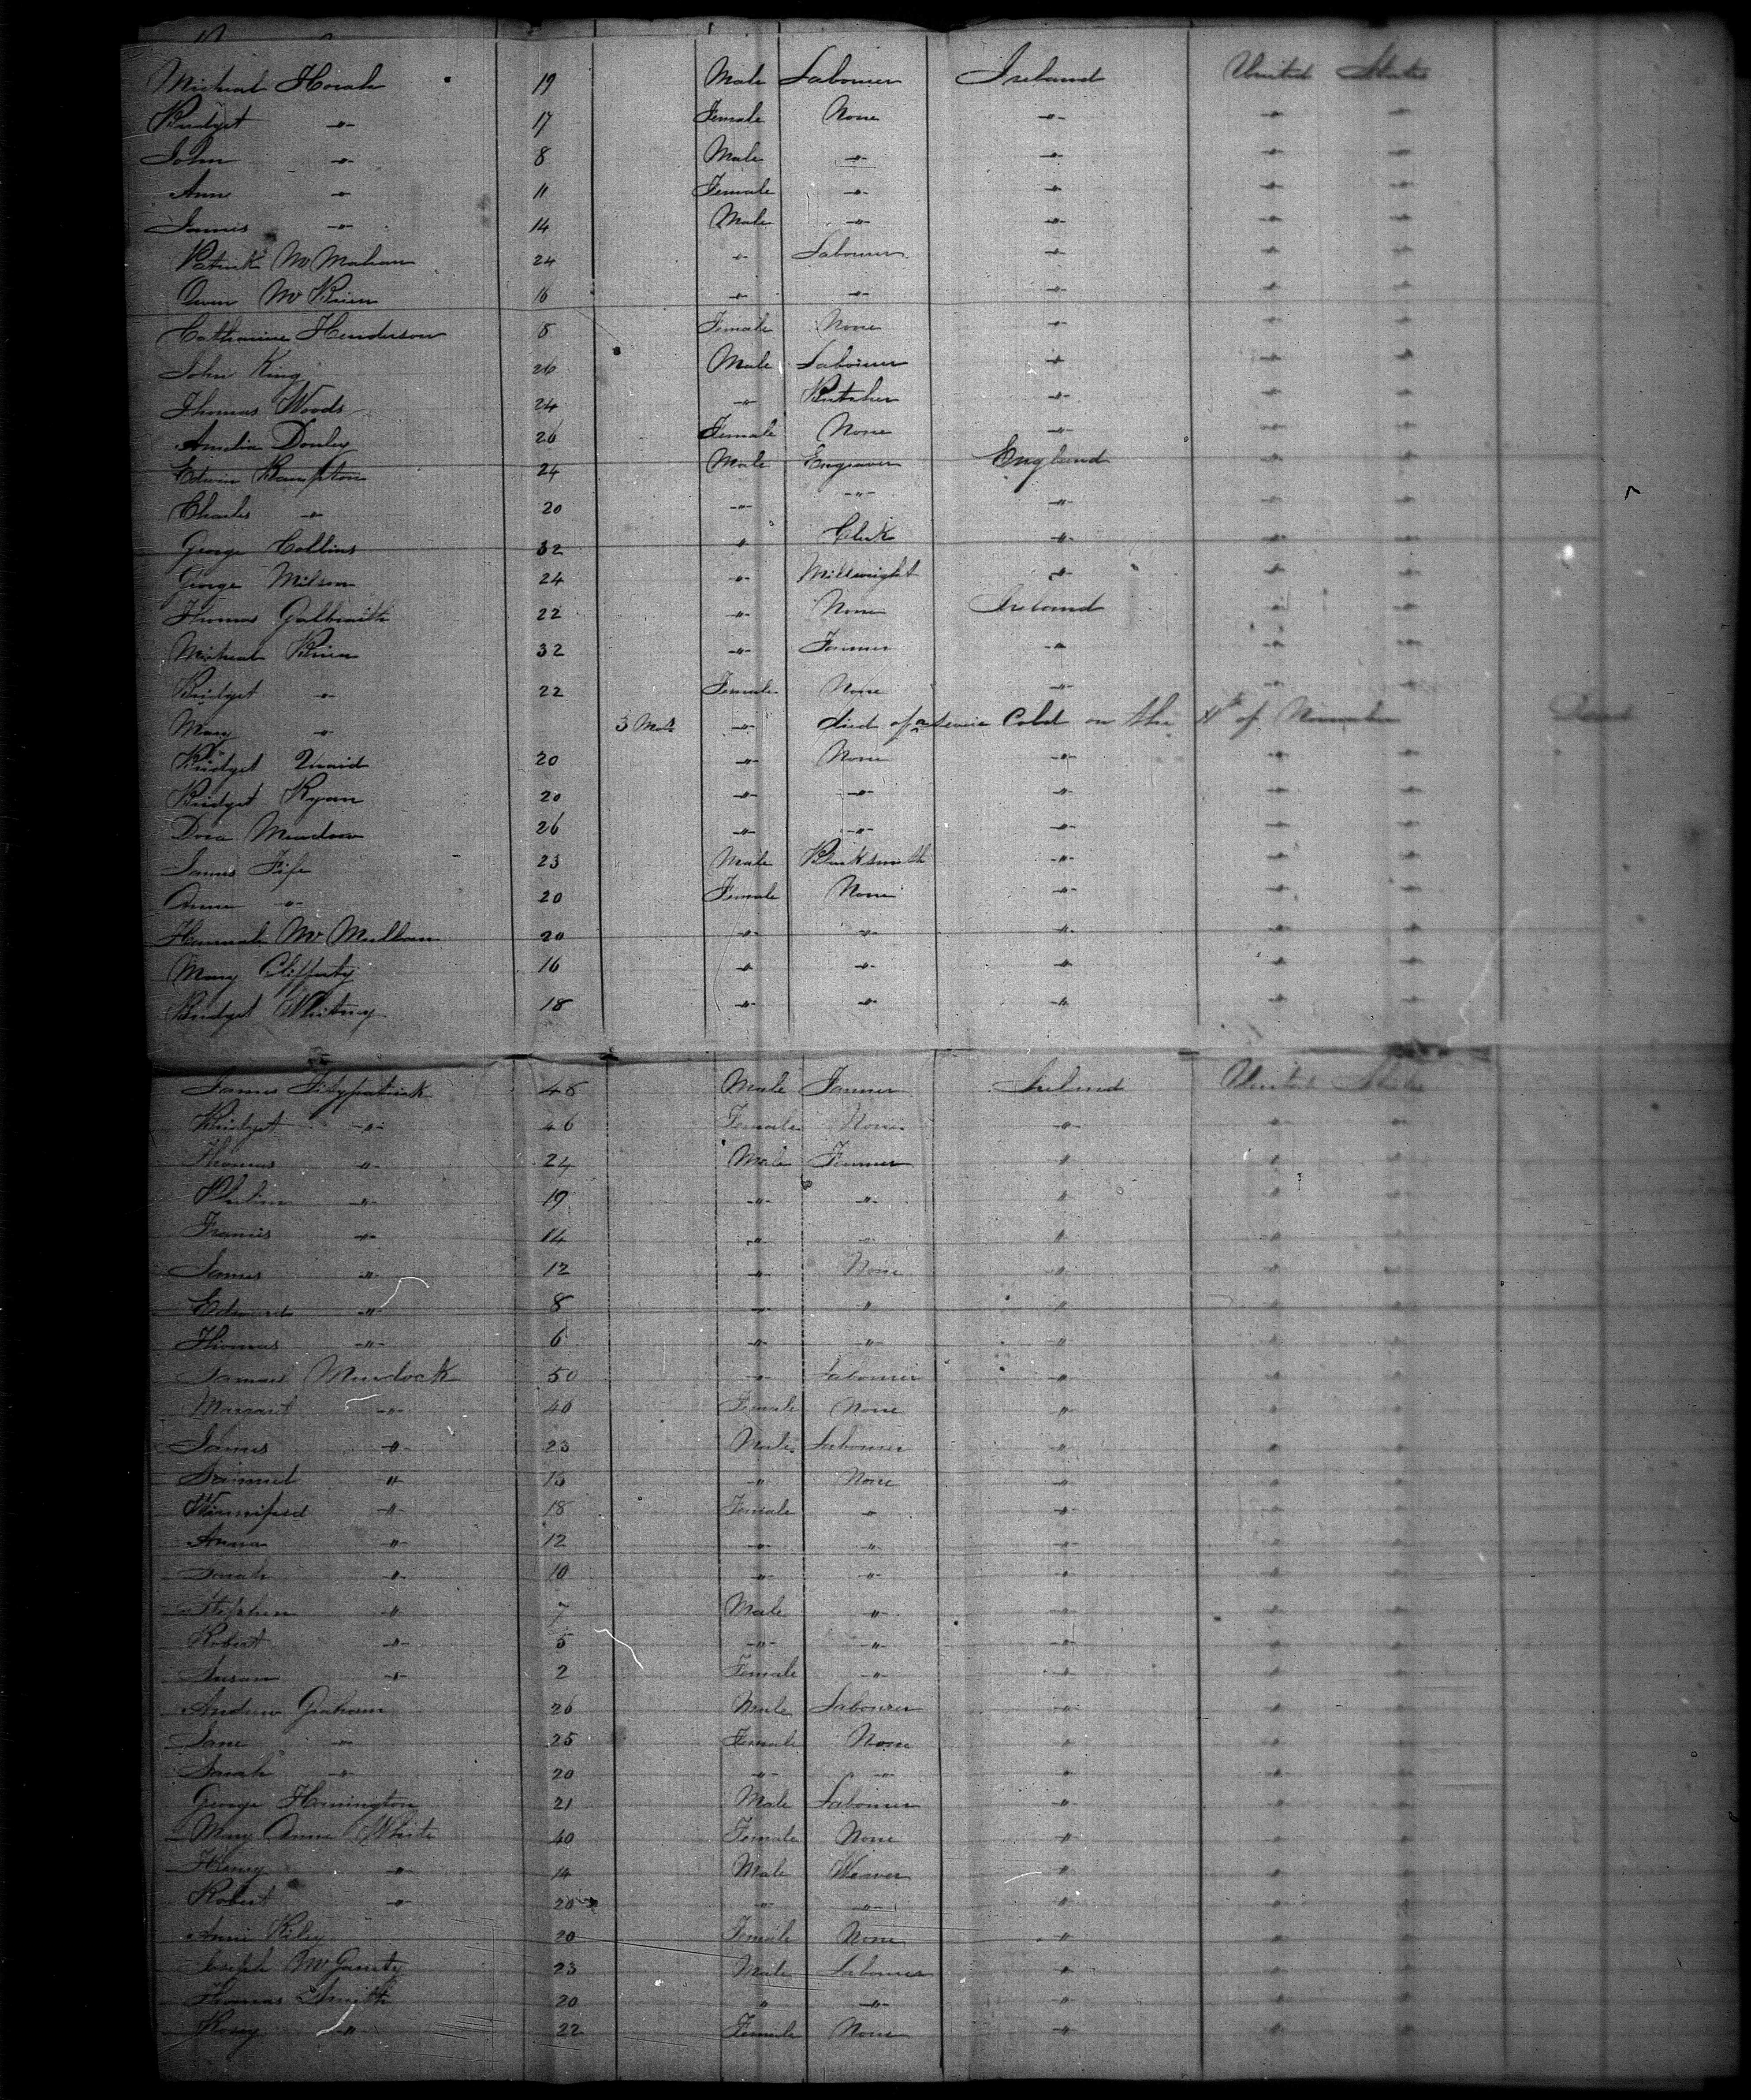 Micheal Horah 19 Male Labourer Ireland United States
Bridget -"- 17 Female None -"- -"- -"-
John -"- 8 Male -"- -"- -"- -"-
Ann -"- 11 Female -"- -"- -"- -"-
James -"- 14 Male -"- -"- -"- -"-
Patrick McMahan 24 -"- Labourer -"- -"- -"-
Owen McBrien 16 -"- -"- -"- -"- -"-
Catharine Henderson 8 Female None -"- -"- -"-
John King 26 Male Labourer -"- -"- -"-
Thomas Woods 24 -"- Butcher -"- -"- -"-
Amelia Donley 26 Female None -"- -"- -"-
Edwin Bampton 24 Male Engraver England -"- -"-
Charles -"- 20 -"- -"- -"- -"- -"-
George Collins 32 " Clerk -"- -"- -"-
George Milson 24 -"- Millwright -"- -"- -"-
Thomas Galbraith 22 -"- None Ireland -"- -"-
Micheal Brien 32 -"- Farmer -"- -"- -"-
Bridget -"- 22 Female None -"- -"- -"-
Mary -"- 3 Mos -"- died of a severe Cold on the 4th of November Dead
Bridget Quaid 20 -"- None -"- -"- -"-
Bridget Ryan 20 -"- -"- -"- -"- -"-
Dora Meadow 26 -"- -"- -"- -"- -"-
James Fife 23 Male Blacksmith -"- -"- -"-
Anne -"- 20 Female None -"- -"- -"-
Hannah McMullan 20 -"- -"- -"- -"- -"-
Mary Clifferty 16 -"- -"- -"- -"- -"-
Bridget Whitney 18 -"- -"- -"- -"- -"-
James Fitzpatrick 48 Male Farmer Ireland United States
Bridget -"- 46 Female None -"- -"- -"-
Thomas -"- 24 Male Farmer -"- " "
Phelim -"- 19 -"- -"- " " "
Francis -"- 14 -"- -"- " " "
James -"- 12 -"- None -"- " "
Edward -"- 8 -"- " " " "
Thomas -"- 6 -"- -"- " " "
Samuel Murdock 50 -"- Labourer -"- " "
Margaret -"- 46 Female None " " "
James -"- 23 Male Labourer " " "
Samuel " 13 -"- None -"- " "
Winnifred -"- 18 Female " -"- " "
Anna -"- 12 -"- -"- -"- " "
Sarah -"- 10 -"- -"- -"- " "
Stephen -"- 7 Male " -"- " "
Robert -"- 5 -"- -"- -"- " "
Susan -"- 2 Female -"- -"- " "
Andrew Graham 26 Male Labourer -"- " "
Jane -"- 25 Female None " " "
Sarah -"- 20 -"- -"- " " "
George Hornington 21 Male Labourer " " "
Mary Anne White 40 Female None -"- " "
Henry -"- 14 Male Weaver -"- " "
Robert -"- 20 -"- -"- " " "
Annie Riley 20 Female None -"- " "
Joseph McGarrity 23 Male Labourer " " "
Thomas Smith 20 " -"- -"- " "
Rosey -"- 22 Female None -"- " "